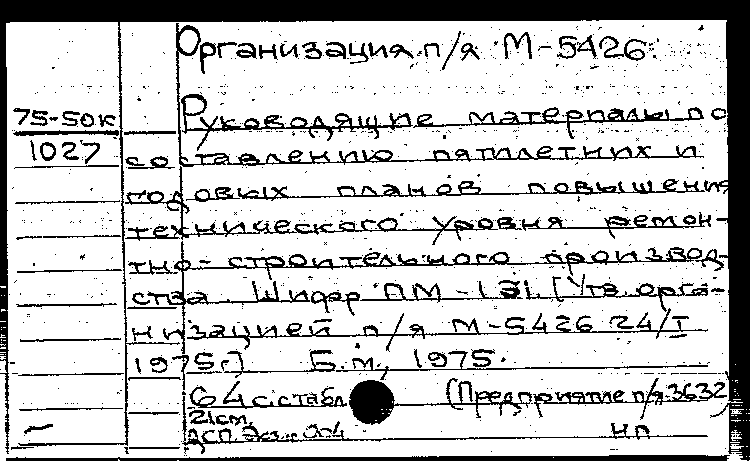 Организация п/я М-5426.
75-50к
Руководящие материалы по
1027
составлению пятилетних и
годовых планов повышения
технического уровня ремон-
тно-строительного производ-
ства. Шифр ПМ-131. [Утв. орга-
низацией п/я М-5426 24/I
1975г.] Б.м., 1975.
64с. с табл. (Предприятие п/я 3632)
21см.
ДСП. Экз.
нп